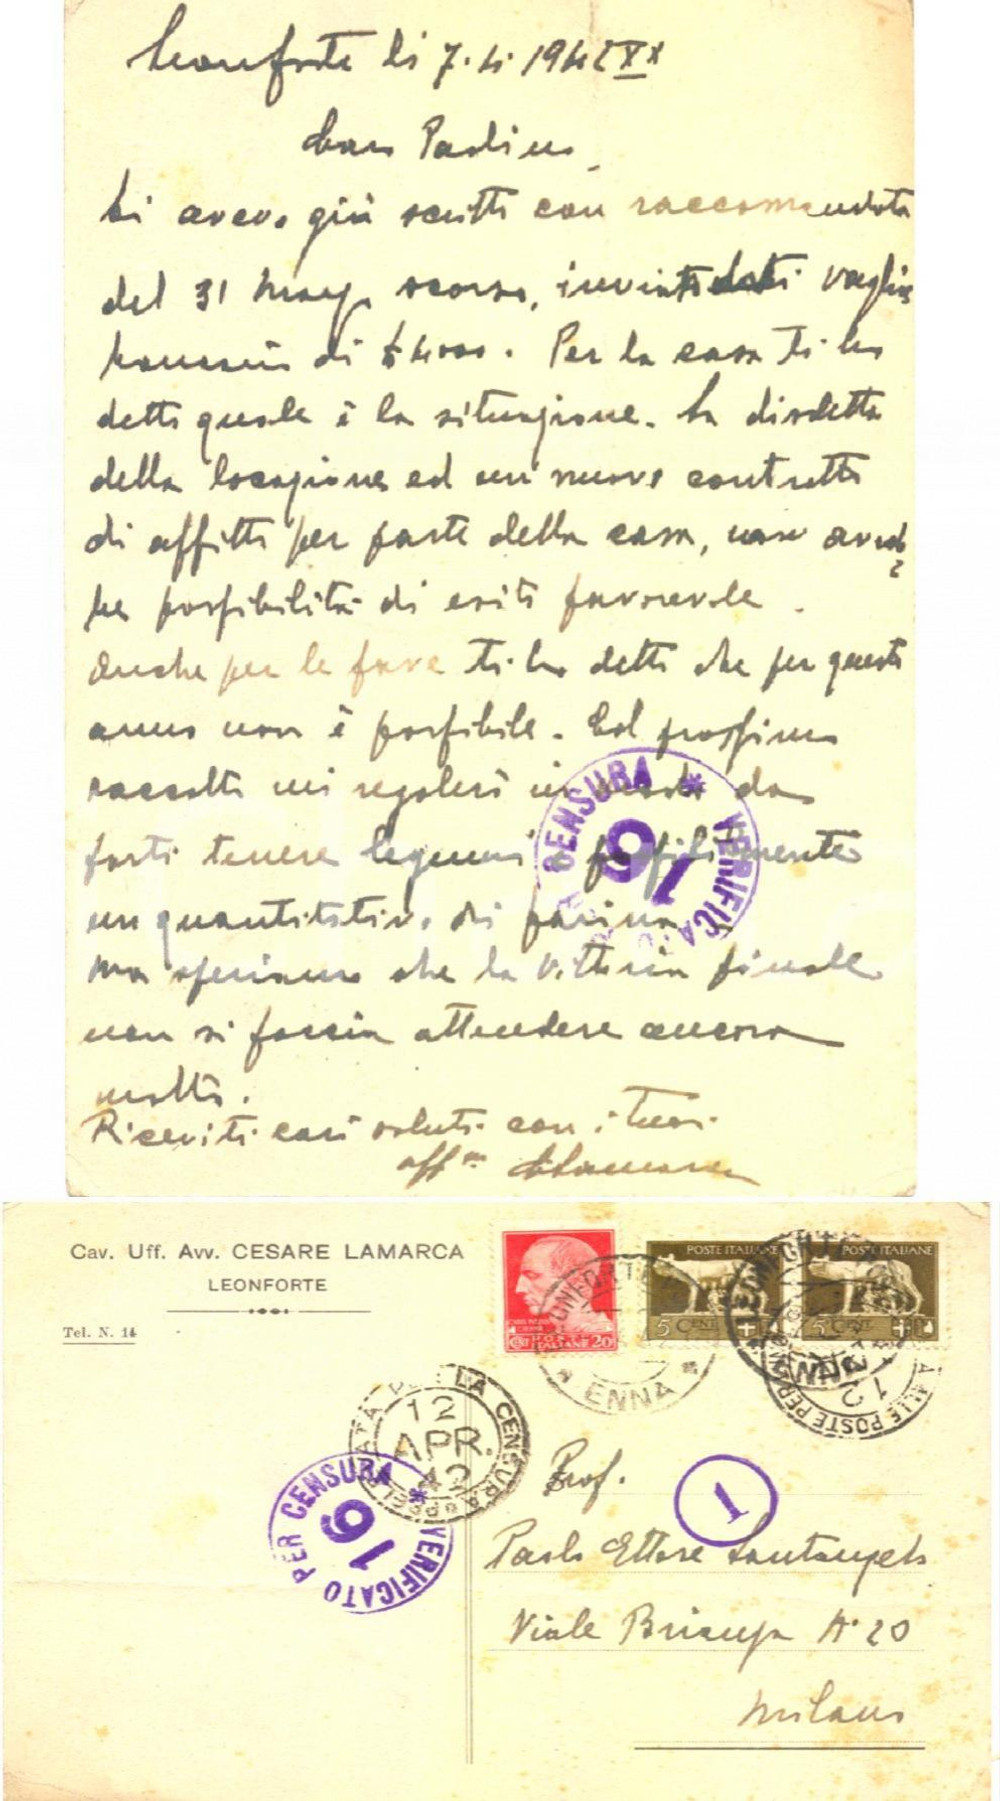 Leonforte li 7.4.1942 XX
Caro Paolino,
Ti avevo già scritto con raccomandata
del 31 marzo scorso, inviandoti vaglia
bancario di £ 4000. Per la casa ti ho
detto quale è la situazione. La disdetta
della locazione ed un nuovo contratto
di affitto per parte della casa, non
ha possibilità di esito favorevole.
Anche per le fave ti ho detto che per questo
anno non è possibile. Col prossimo
raccolto mi regolerò in modo da
farti tenere legumi e possibilmente
un quantitativo di farina
Ma speriamo che la Vittoria finale
non si faccia attendere ancora
molto.
Ricevi ti cari saluti con i Tuoi.
aff.mo CLamarca
VERIFICATO PER CENSURA *
91
Cav. Uff. Avv. CESARE LAMARCA
LEONFORTE
Tel. N. 14
POSTE ITALIANE
5 CENT
POSTE ITALIANE
5 CENT
POSTE ITALIANE 20
LEONFORTE * ENNA *
LEONFORTE
ENNA
12
APR.
42
VERIFICATO PER CENSURA *
91
1
Prof.
Paolo Ettore Santangelo
Viale Brianza N° 20
Milano